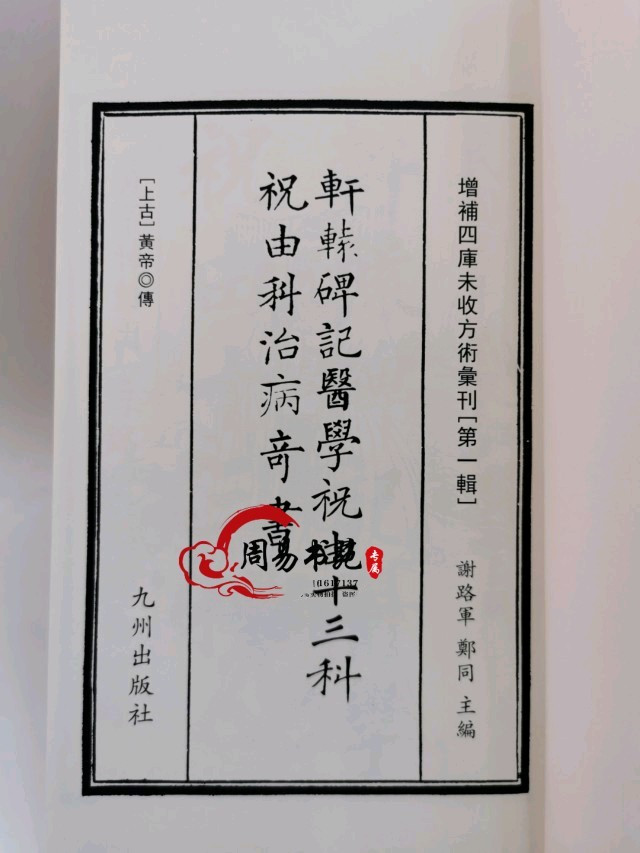 增補四庫未收方術彙刊[第一輯]
謝路軍 鄭同 主編
軒轅碑記醫學祝由十三科
祝由科治病奇書
[上古]黃帝◎傳
九州出版社
周易书苑
专属